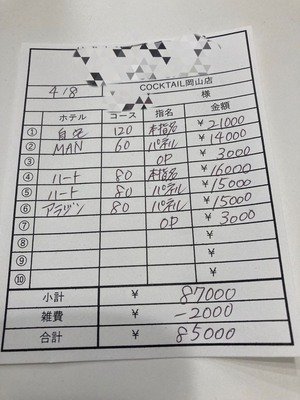 COCKTAIL岡山店
4/8 様
ホテル コース 指名 金額
① 自宅 120 本指名 ¥21000
② MAN 60 パネル ¥14000
③ OP ¥3000
④ ハート 80 本指名 ¥16000
⑤ ハート 80 パネル ¥15000
⑥ アラジン 80 パネル ¥15000
⑦ OP ¥3000
⑧ ¥
⑨ ¥
⑩ ¥
小計 ¥ 87000
雑費 ¥ -2000
合計 ¥ 85000